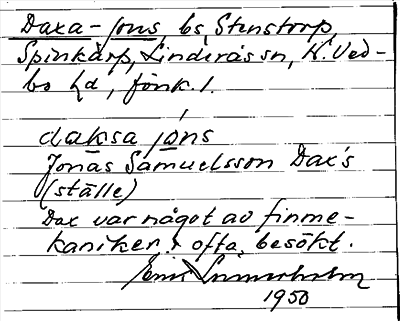 Daxa-Jons, bs, Stenstorp,
Spinkarp, Linderås sn, N. Ved-
bo hd, Jönk. l.
daksa jòns
Jonas Samuelsson Dax's
(ställe)
Dax var något av finme-
kaniker, ofta besökt.
1950